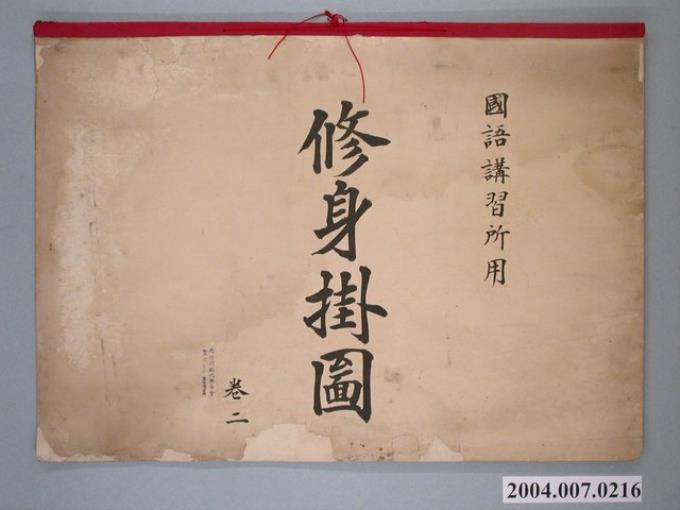 國語講習所用
修身掛圖
卷二
2004.007.0216